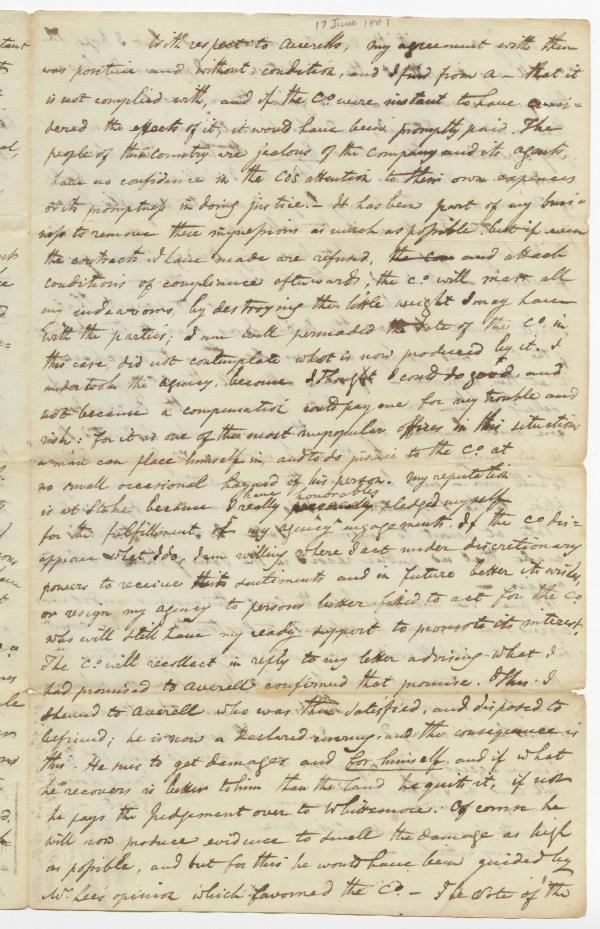 17 June 1801
With respect to Averells, my agreement with them
was positive and without condition, and I find from a – that it
is not complied with, and if the Co. were instant to have consi=
dered the effects of it, it would have been promptly paid. The
people of this Country are jealous of the Company and its agents,
have no confidence in the Co's attention to their own expences
or its promptness in doing justice – It has been part of my busi=
ness to remove these impressions as much as possible. but if even
the contracts I have made are refused, the con and attach
conditions of compliance afterwards, the Co. will mar all
my indeavours, by destroying the little weight I may have
with the parties; I am well persuaded the Vote of the Co. in
this case, did not contemplate what is now produced by it. I
undertook the agency, because I thought I could do good, and
not because a compensation could pay me for my trouble and
risk: for it is one of the most unpopular offices in this situation
a man can place himself in, and to do justice to the Co. at
no small occasional hazard of his person. My reputation
is at Stake because I really have honorably pledged myself
for the fulfillment of my agency engagements. If the Co dis=
approve what I do, I am willing where I act under discretionary
powers to receive their sentiments and in future better its wishes,
or resign my agency to persons better fitted to act for the Co.
who will still have my ready support to promote its interest.
The Co. will recollect in reply to my letter advising what I
had promised to Averell confirmed that promise. This I
shewed to Averell who was then satisfied, and disposed to
befriend; he is now a declared enemy, and the consequence is
this. He sues to get damages and for himself and if what
he recovers is better to him than the land he quits it, if not
he pays the Judgement over to Whittemore. Of course he
will now produce evidence to swell the damage as high
as possible, and but for this he would have been guided by
Mr. Lees opinion which favored the Co. – The Vote of the